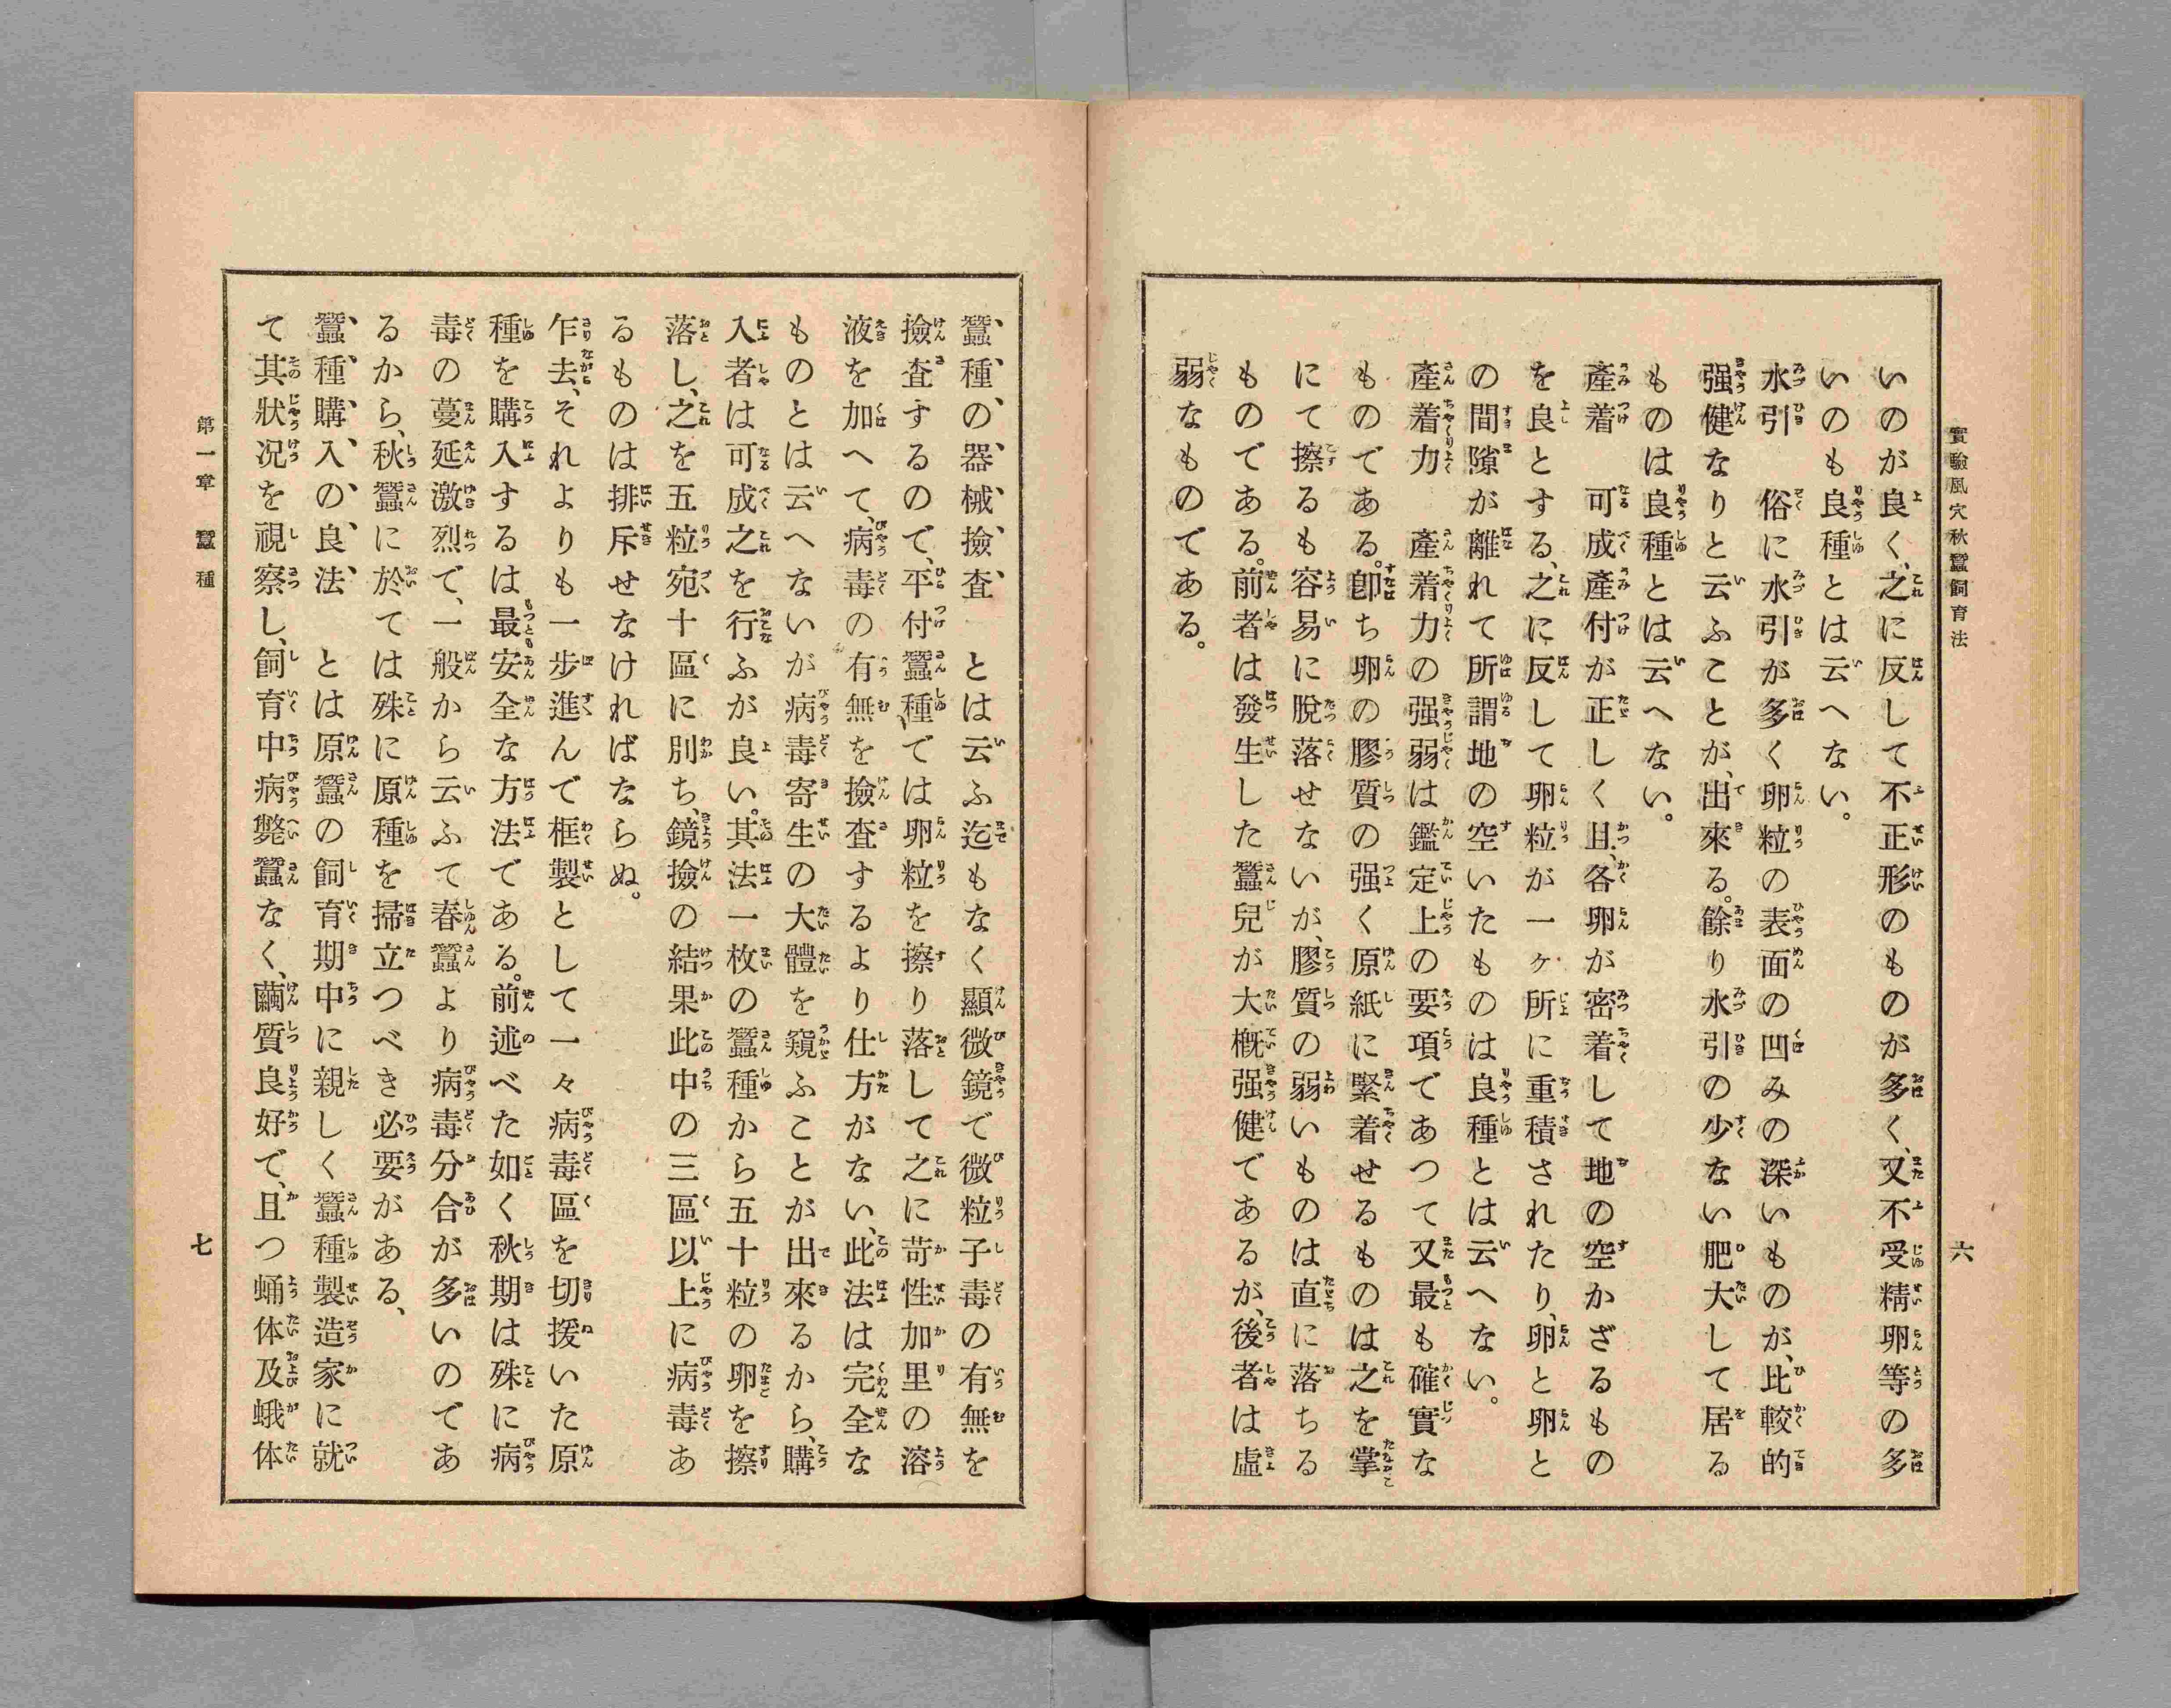 實驗風穴秋蠶飼育法　六
いのが良く、之に反して不正形のものが多く、又不受精卵等の多
いのも良種とは云へない。
水引　俗に水引が多く卵粒の表面の凹みの深いものが、比較的
强健なりと云ふことが、出來る。餘り水引の少ない肥大して居る
ものは良種とは云へない。
產着　可成產付が正しく且、各卵が密着して地の空かざるもの
を良とする、之に反して卵粒が一ヶ所に重積されたり、卵と卵と
の間隙が離れて所謂地の空いたものは良種とは云へない。
產着力　產着力の强弱は鑑定上の要項であつて又最も確實な
ものである。卽ち卵の膠質の强く原紙に緊着せるものは之を掌
にて擦るも容易に脫落せないが、膠質の弱いものは直に落ちる
ものである。前者は發生した蠶兒が大槪强健であるが、後者は虛
弱なものである。
蠶種の器械撿査　とは云ふ迄もなく顯微鏡で微粒子毒の有無を
撿査するので、平付蠶種、では卵粒を擦り落して之に苛性加里の溶
液を加へて、病毒の有無を撿査するより仕方がない、此法は完全な
ものとは云へないが病毒寄生の大體を窺ふことが出來るから、購
入者は可成之を行ふが良い。其法一枚の蠶種から五十粒の卵を擦
落し、之を五粒宛十區に別ち、鏡撿の結果此中の三區以上に病毒あ
るものは排斥せなければならぬ。
乍去、それよりも一步進んで框製として一々病毒區を切援いた原
種を購入するは最安全な方法である。前述べた如く秋期は殊に病
毒の蔓延激烈で、一般から云ふて春蠶より病毒分合が多いのであ
るから、秋蠶に於ては殊に原種を掃立つべき必要がある、
蠶種購入の良法　とは原蠶の飼育期中に親しく蠶種製造家に就
て其狀况を視察し、飼育中病斃蠶なく、繭質良好で、且つ蛹体及蛾体
第一章　蠶種　七